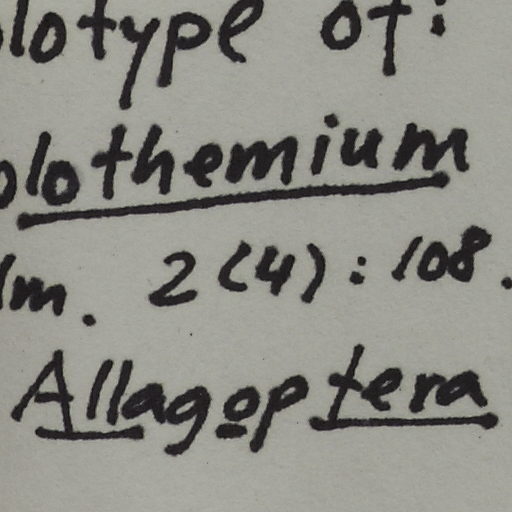 lotype of:
olothemium
lm. 2(4): 108.
Allagoptera